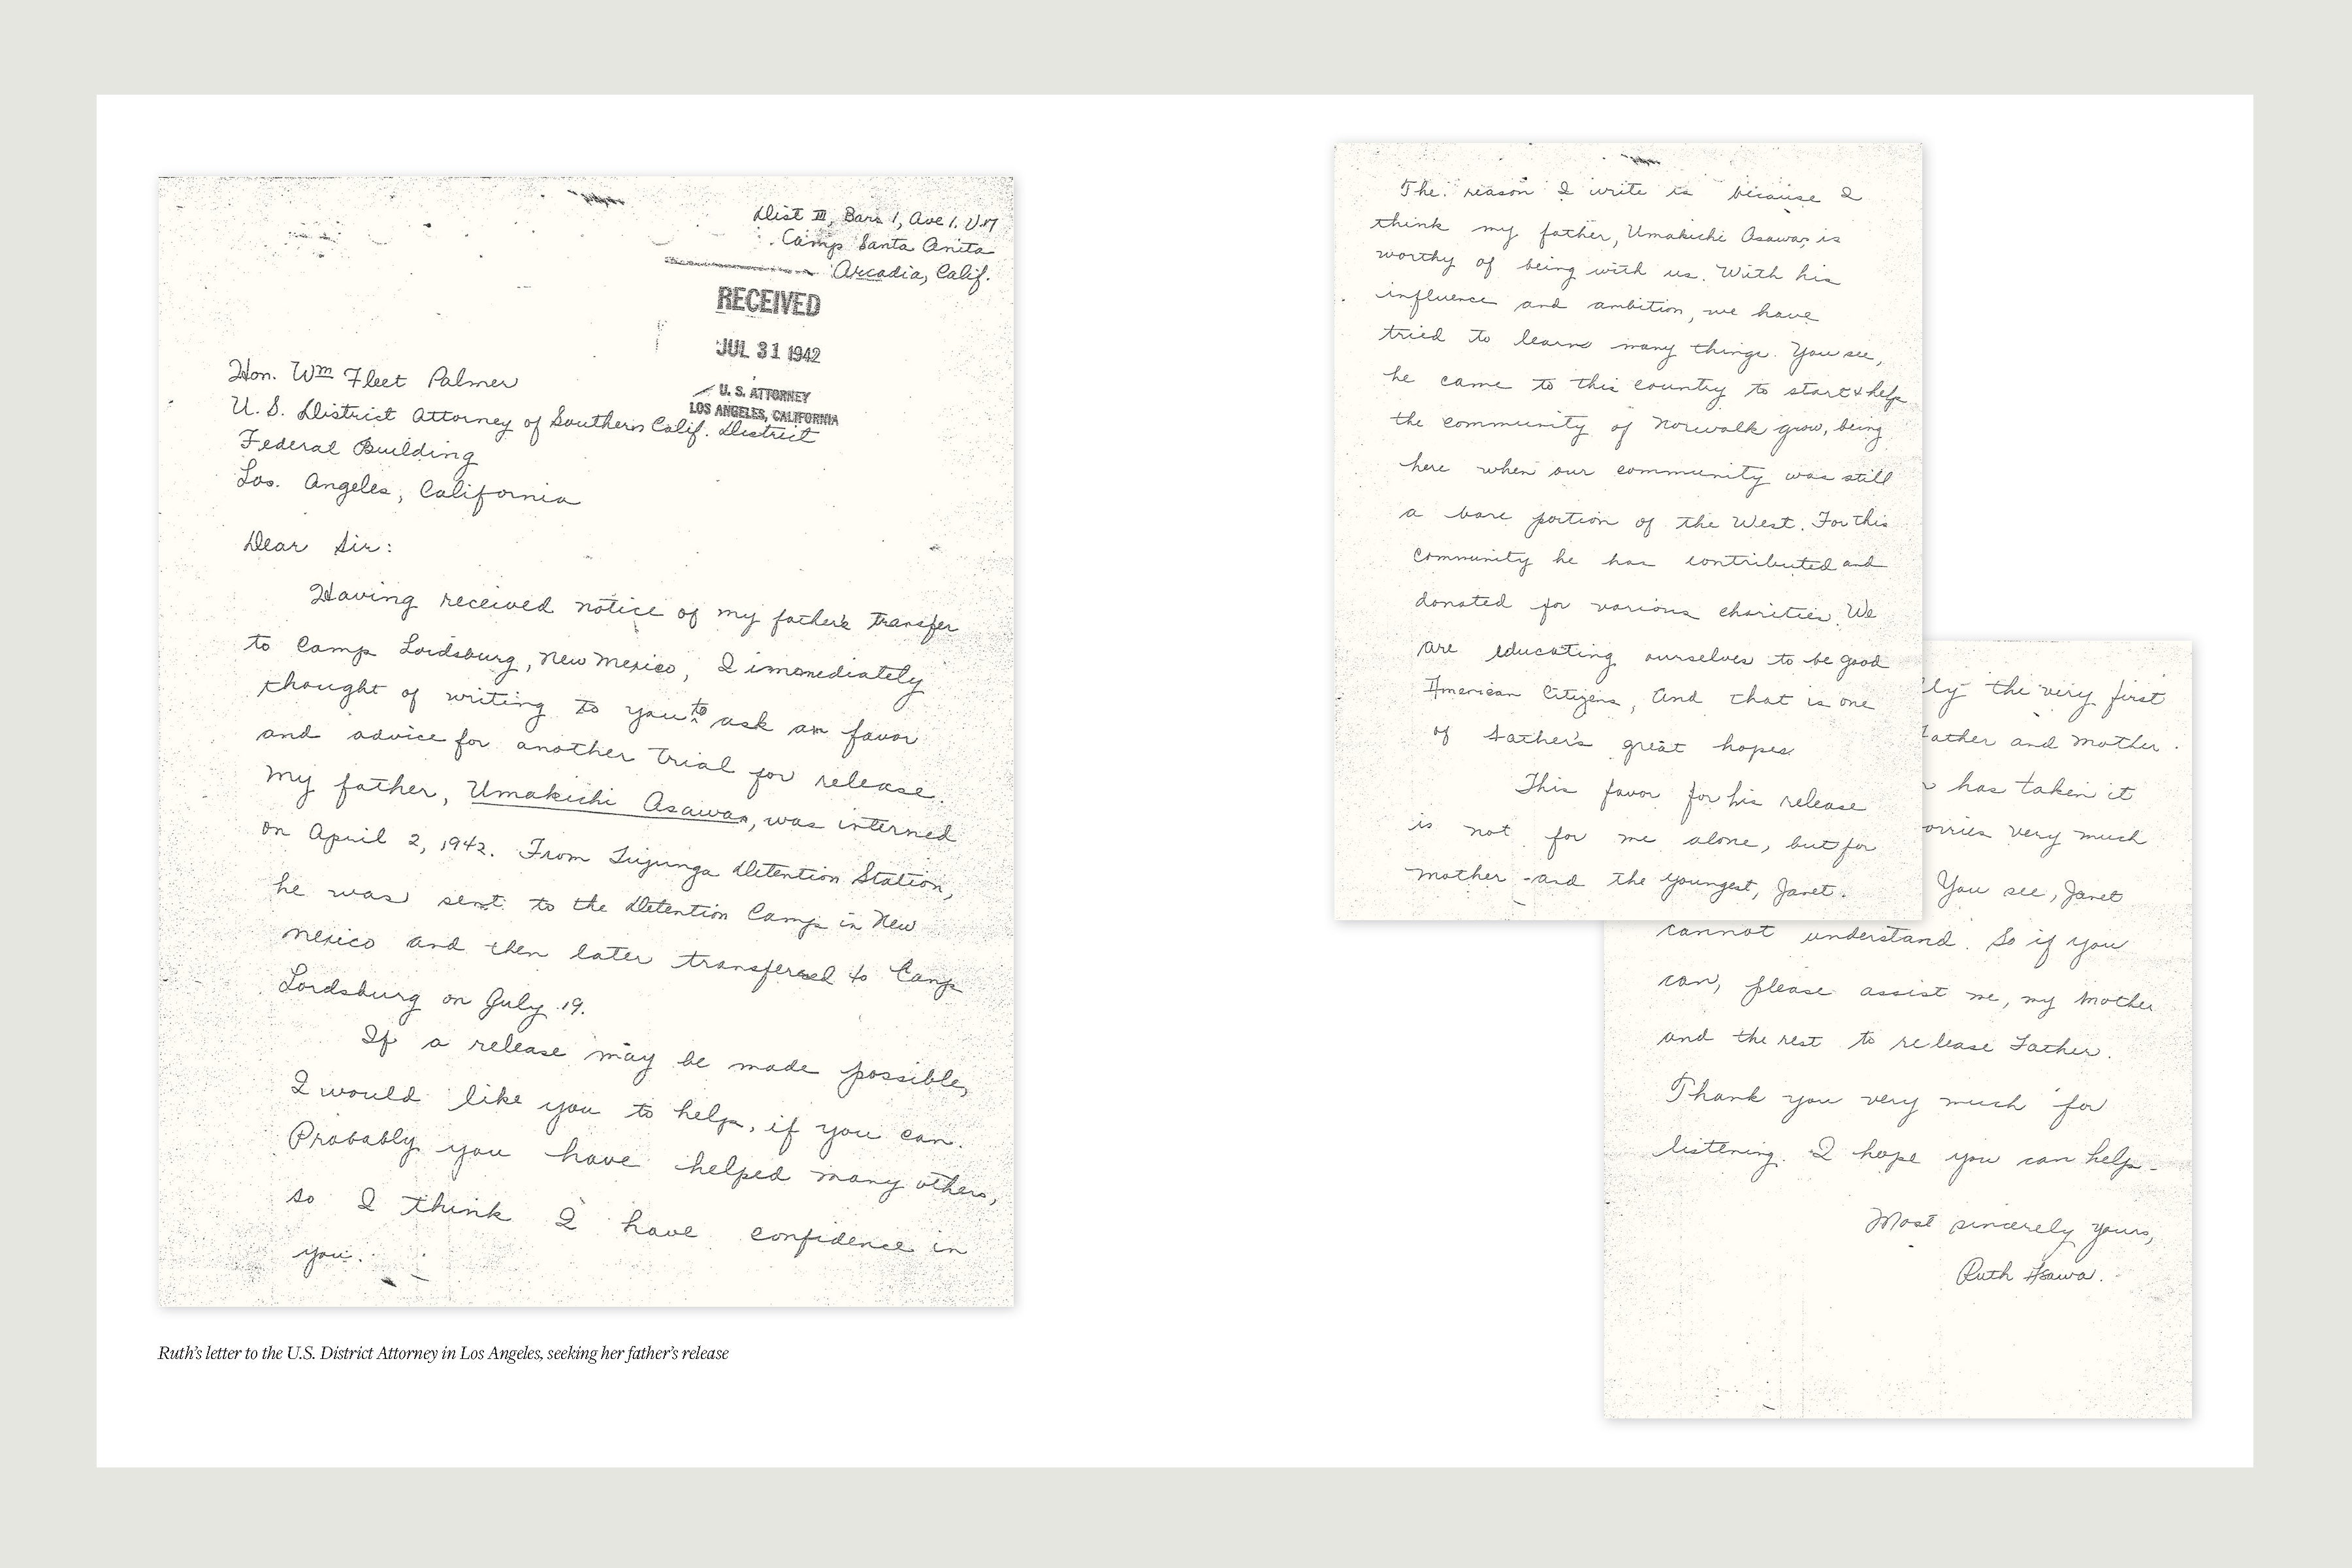 Dist III, Bars 1, Ave 1. U.17
Camp Santa Anita
Arcadia, Calif.
RECEIVED
JUL 31 1942
U. S. ATTORNEY
LOS ANGELES, CALIFORNIA
Hon. Wm Fleet Palmer
U. S. District Attorney of Southern Calif. District
Federal Building
Los. Angeles, California
Dear Sir:
Having received notice of my father's transfer
to Camp Lordsburg, New Mexico, I immediately
thought of writing to you to ask a favor
and advice for another trial for release.
My father, Umakichi Asawa, was interned
on April 2, 1942. From Tujunga Detention Station,
he was sent to the Detention Camp in New
Mexico and then later transfered to Camp
Lordsburg on July 19.
If a release may be made possible,
I would like you to help, if you can.
Probably you have helped many others,
so I think I have confidence in
you.
Ruth's letter to the U.S. District Attorney in Los Angeles, seeking her father's release
The reason I write is because I
think my father, Umakichi Asawa, is
worthy of being with us. With his
influence and ambition, we have
tried to learn many things. You see,
he came to this country to start & help
the community of Norwalk grow, being
here when our community was still
a bare portion of the West. For this
community he has contributed and
donated for various charities. We
are educating ourselves to be good
American Citizens, And that is one
of Father's great hopes.
This favor for his release
is not for me alone, but for
mother and the youngest, Janet.
lly the very first
Father and Mother.
has taken it
orries very much
You see, Janet
cannot understand. So if you
can, please assist me, my Mother
and the rest to release Father.
Thank you very much for
listening. I hope you can help.
Most sincerely yours,
Ruth Asawa.